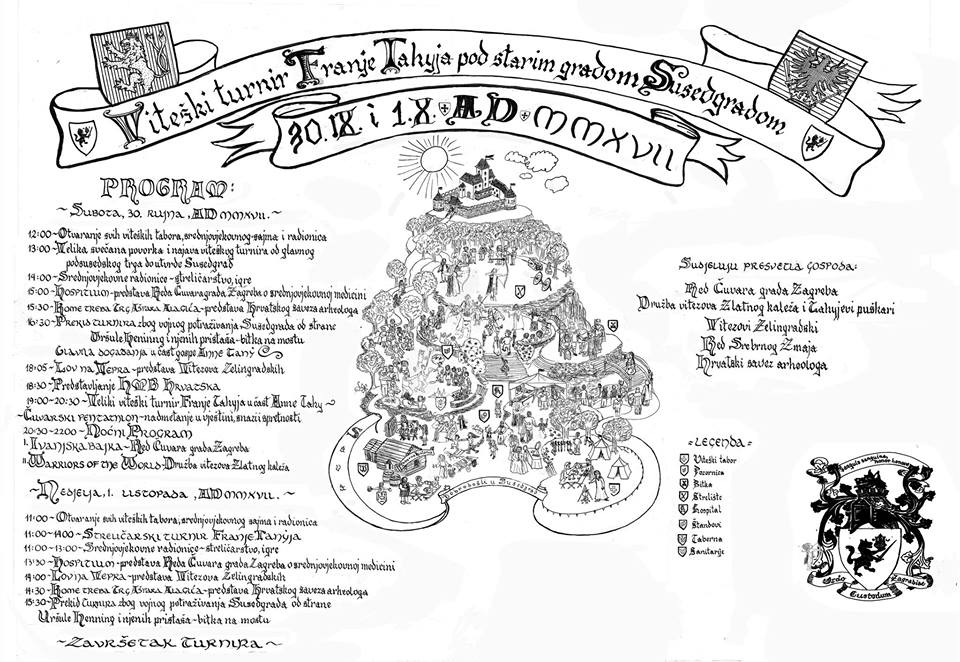 Viteški turnir Franje Tahyja pod starim gradom Susedgradom
30. IX. i 1. X. AD MMXVII
PROGRAM:
~Subota, 30. rujna, AD MMXVII.~
12:00~Otvaranje svih viteških tabora, srednjovjekovnog sajma i radionica
13:00~Velika svečana povorka i najava viteškog turnira od glavnog
podsusedskog trga do utvrde Susedgrad
14:00~Srednjovjekovne radionice~streličarstvo, igre
15:00~Hospitium~predstava Reda Čuvara grada Zagreba o srednjovjekovnoj medicini
15:30~Kome treba Trg Bırara Alagića~predstava Hrvatskog saveza arheologa
16:30~Prekid turnira zbog vojnog potraživanja Susedgrada od strane
Uršule Henning i njenih pristaša~bitka na mostu
Glavna događanja u čast gospe Anne Tahy
18:05~Lov na Vepra~predstava Vitezova Zelingradskih
18:30~Predstavljanje HMB Hrvatska
19:00~20:30~Veliki viteški turnir Franje Tahyja u čast Anne Tahy~
~Čuvarski pentatlon~nadmetanje u vještini, snazi i spretnosti
20:30~22:00~Noćni Program
I. Ivanjska bajka~Red Čuvara grada Zagreba
II. Warriors of the World~Družba vitezova Zlatnog kaleža
~Nedjelja, 1. listopada, AD MMXVII.~
11:00~Otvaranje svih viteških tabora, srednjovjekovnog sajma i radionica
11:00~14:00~Streličarski turnir Franje Tahyja
11:00~13:00~Srednjovjekovne radionice~streličarstvo, igre
13:30~Hospitium~predstava Reda Čuvara grada Zagreba o srednjovjekovnoj medicini
14:00~Lov na Vepra~predstava Vitezova Zelingradskih
14:30~Kome treba Trg Alagića~predstava Hrvatskog saveza arheologa
15:30~Prekid turnira zbog vojnog potraživanja Susedgrada od strane
Uršule Henning i njenih pristaša~bitka na mostu
~Završetak Turnira~
Sudjeluju presvetla gospoda:
Red Čuvara grada Zagreba
Družba vitezova Zlatnog kaleža i Tahyjevi puškari
Vitezovi Zelingradski
Red Srebrnog Zmaja
Hrvatski savez arheologa
=Legenda=
Viteški tabor
Pozornica
Bitka
Strelište
Hospital
Štandovi
Taberna
Sanitarije
Dobrodošli u Susedgrad
Ordo Zagrabiae
Custodum